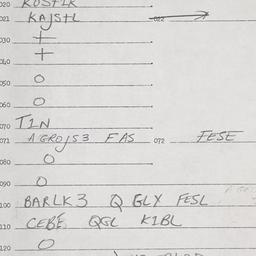 020 KOSTLK
021 KAJSTL 022 →
030 +
040 +
050 O
060 O
070 TIN
071 AGROJS3 FAS 072 FESE
080 O
090 O
100 BARLK3 Q GLY FESL
110 CEBE QGL KIBL
120 O